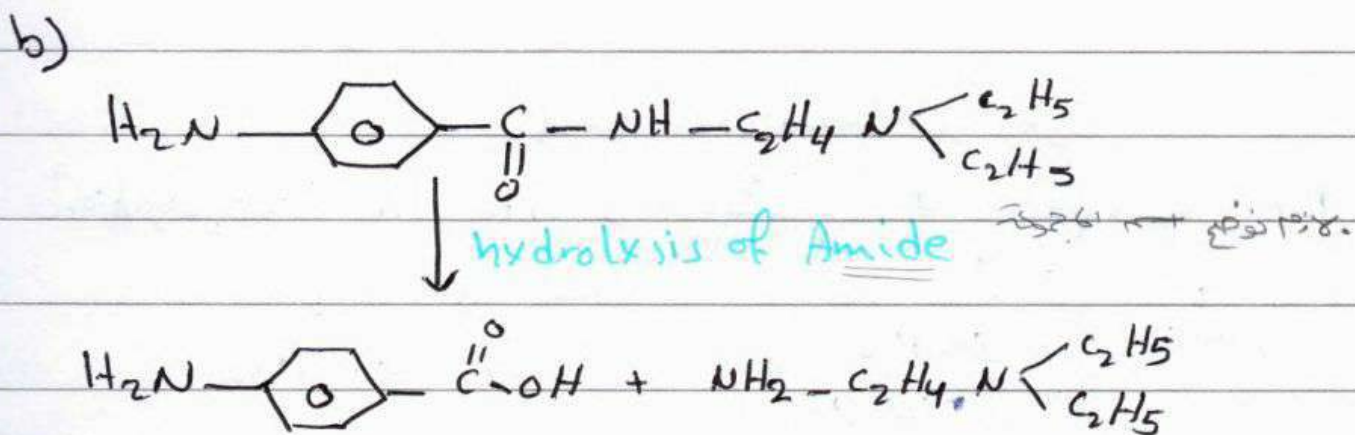 b)
H₂N — C — NH — C₂H₄ N C₂H₅
O C₂H₅
hydrolxsis of Amide
H₂N C O OH + NH₂ - C₂H₄. N C₂H₅
C₂H₅